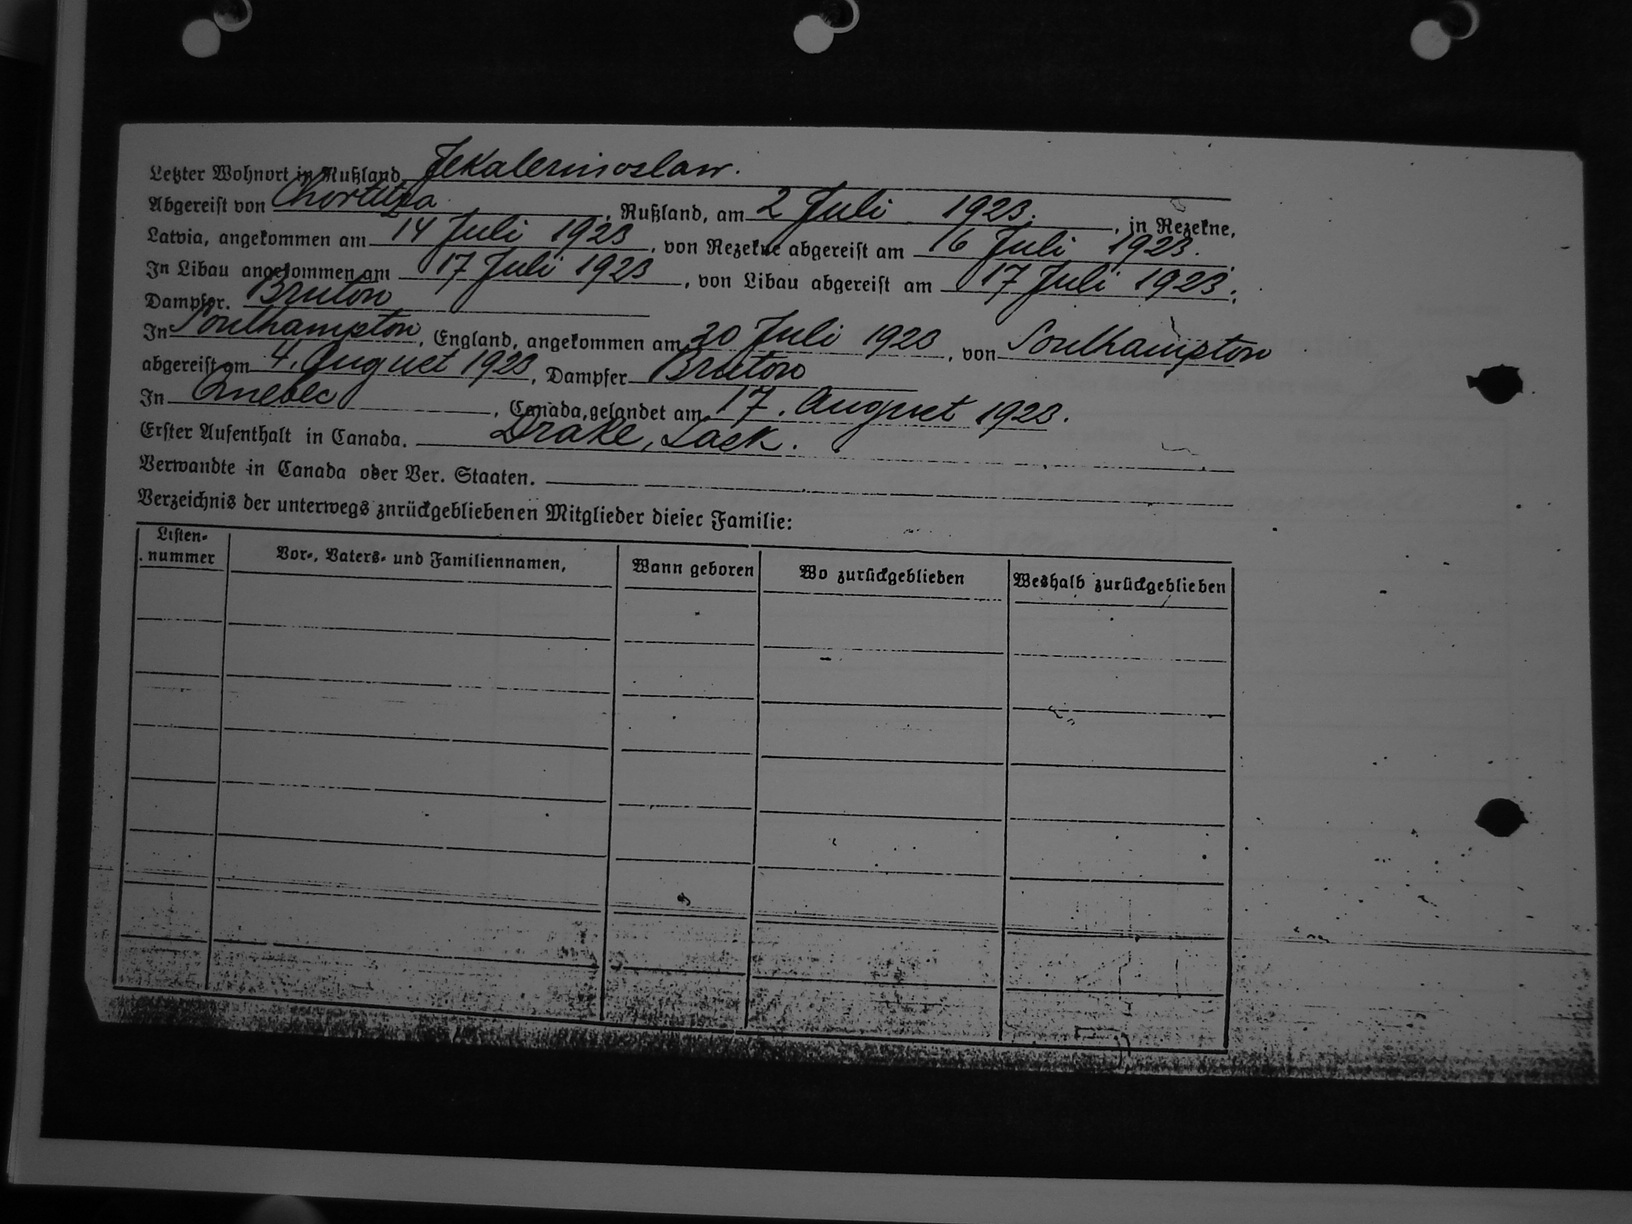 Letzter Wohnort in Rußland Jekaterinoslaw.
Abgereist von Chortitza, Rußland, am 2 Juli 1923, in Rezekne,
Latvia, angekommen am 14 Juli 1923, von Rezekne abgereist am 16 Juli 1923.
In Libau angekommen am 17 Juli 1923, von Libau abgereist am 17 Juli 1923.
Dampfer. Bruton
In Southampton, England, angekommen am 20 Juli 1923, von Southampton
abgereist am 4. August 1923, Dampfer Bruton
In Quebec, Canada, gelandet am 17. August 1923.
Erster Aufenthalt in Canada. Drake, Sask.
Verwandte in Canada oder Ver. Staaten.
Verzeichnis der unterwegs znrückgebliebenen Mitglieder diesec Familie:
Listen-nummer Vor-, Vaters- und Familiennamen, Wann geboren Wo zurückgeblieben Weshalb zurückgeblieben